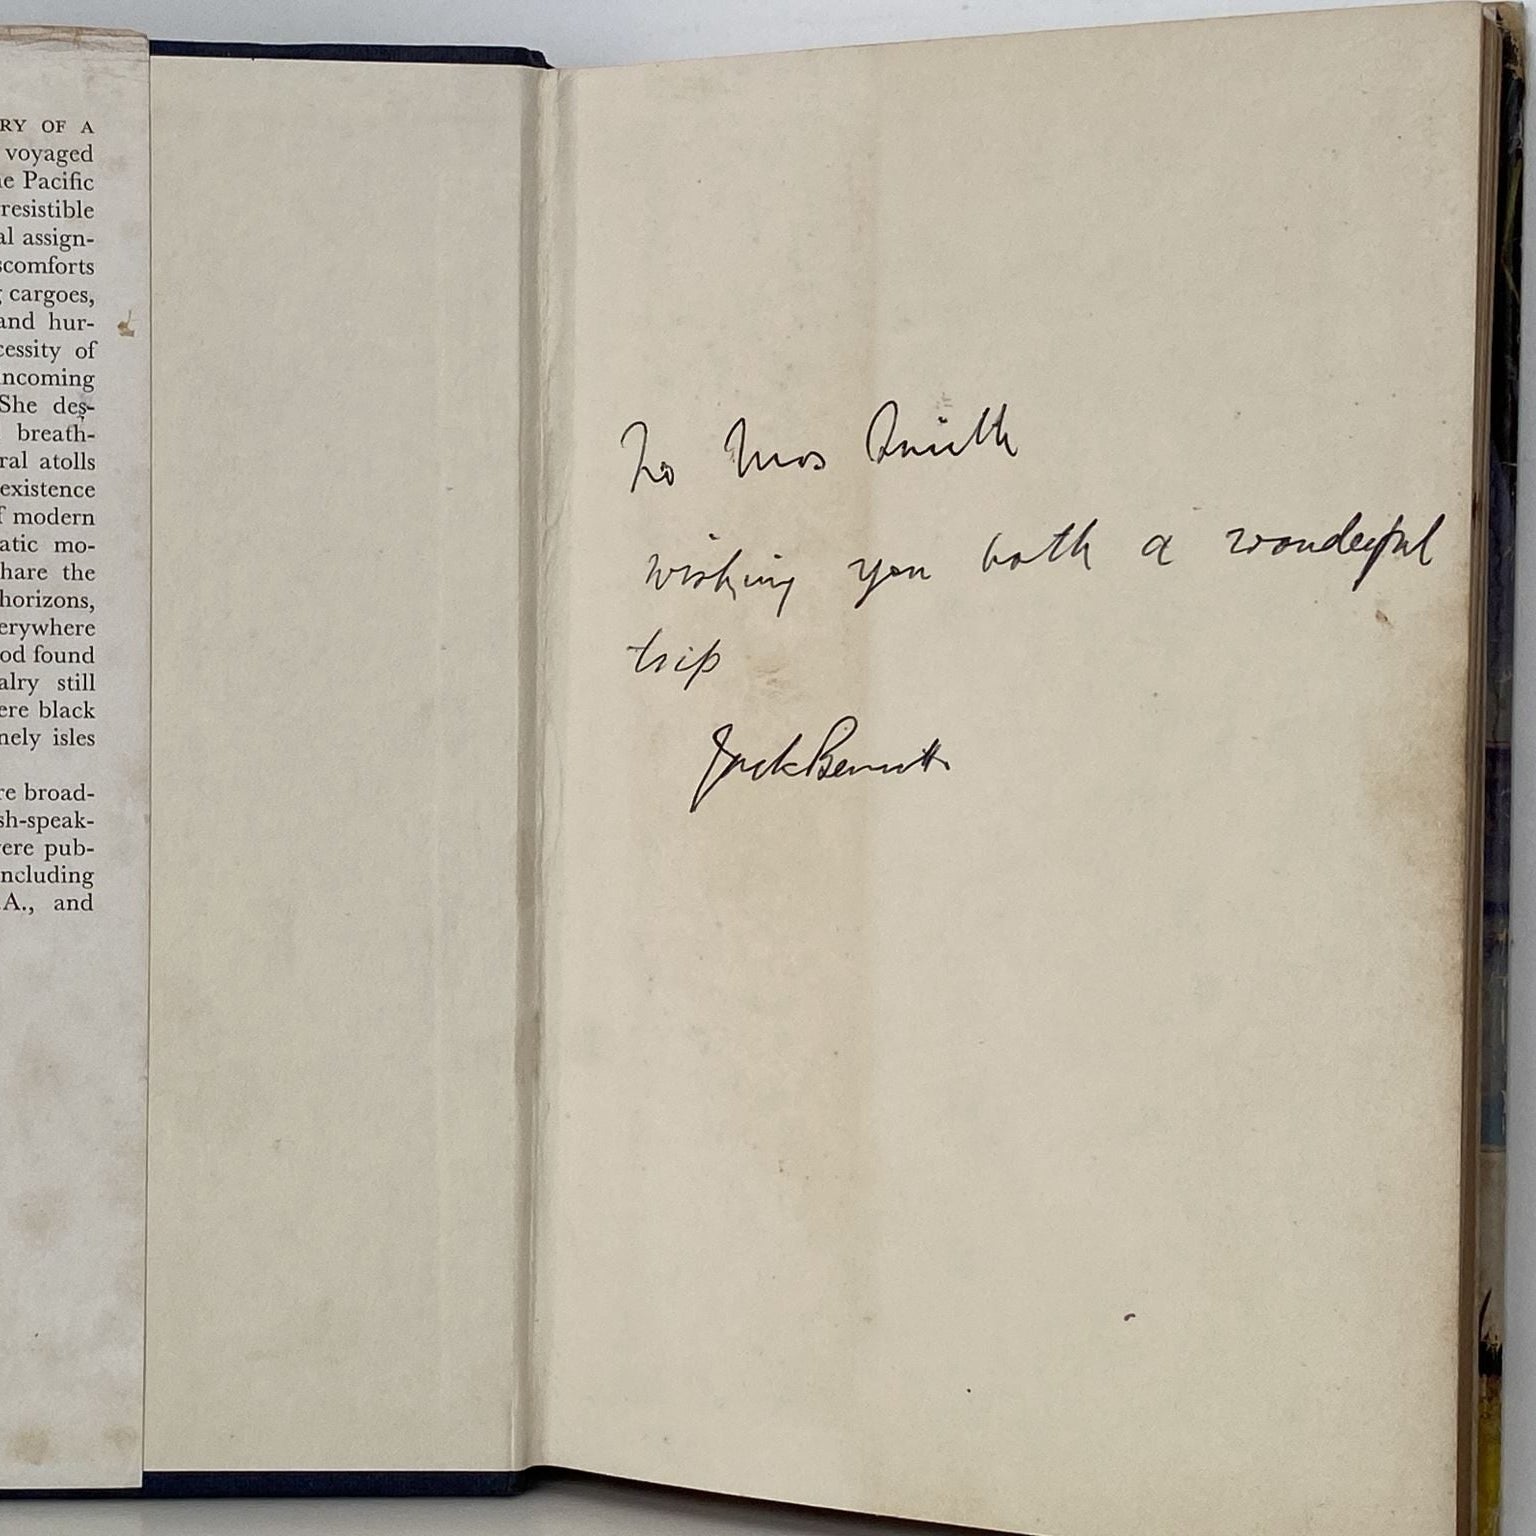 RY OF A
voyaged
e Pacific
rresistible
al assign-
scomforts
g cargoes,
and hur-
cessity of
incoming
She des-
breath-
ral atolls
existence
f modern
atic mo-
hare the
horizons,
erywhere
od found
alry still
ere black
nely isles
re broad-
sh-speak-
ere pub-
ncluding
.A., and
To Mrs Smith
wishing you both a wonderful
trip
Jack Bennett